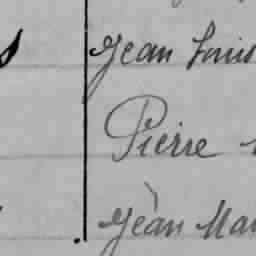 Jean Louis
Pierre
Jean